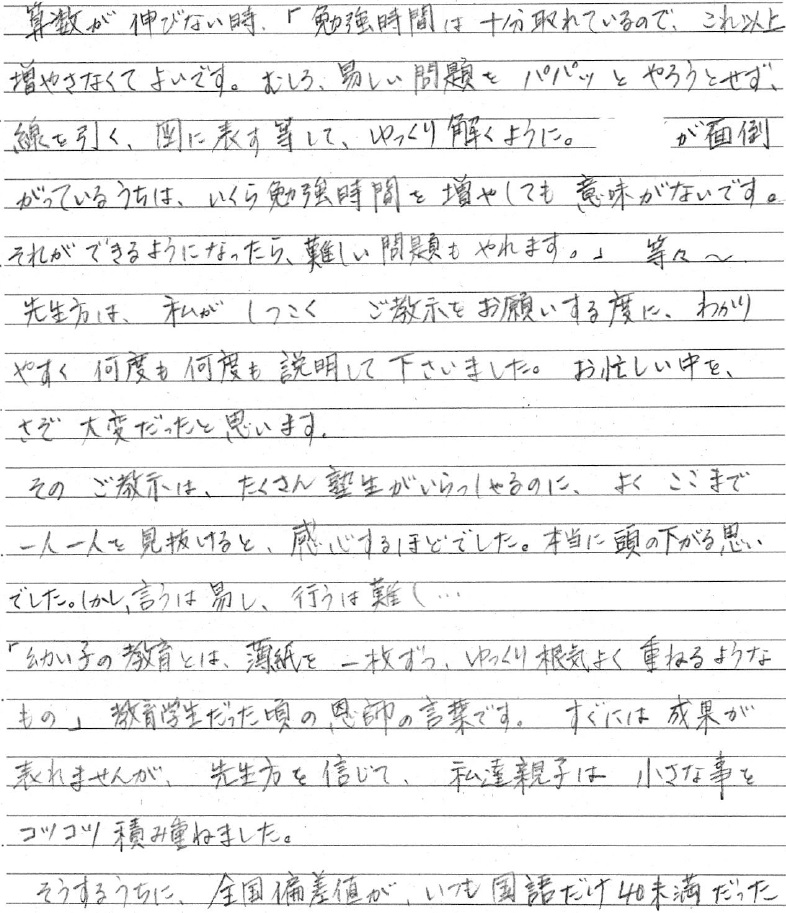 算数が伸びない時、「勉強時間は十分取れているので、これ以上
増やさなくてよいです。むしろ、易しい問題をパパッとやろうとせず、
線を引く、図に表す等して、ゆっくり解くように。 が面倒
がっているうちは、いくら勉強時間を増やしても意味がないです。
それができるようになったら、難しい問題もやれます。」 等々〜
先生方は、私がしつこく ご教示をお願いする度に、わかり
やすく何度も何度も説明して下さいました。お忙しい中を、
さぞ大変だったと思います。
そのご教示は、たくさん塾生がいらっしゃるのに、よくここまで
一人一人を見抜けると、感心するほどでした。本当に頭の下がる思い
でした。しかし、言うは易し、行うは難し…
「幼い子の教育とは、薄紙を一枚ずつ、ゆっくり根気よく重ねるような
もの」教育学生だった頃の恩師の言葉です。すぐには成果が
表れませんが、先生方を信じて、私達親子は小さな事を
コツコツ積み重ねました。
そうするうちに、全国偏差値が、いつも国語だけ40未満だった